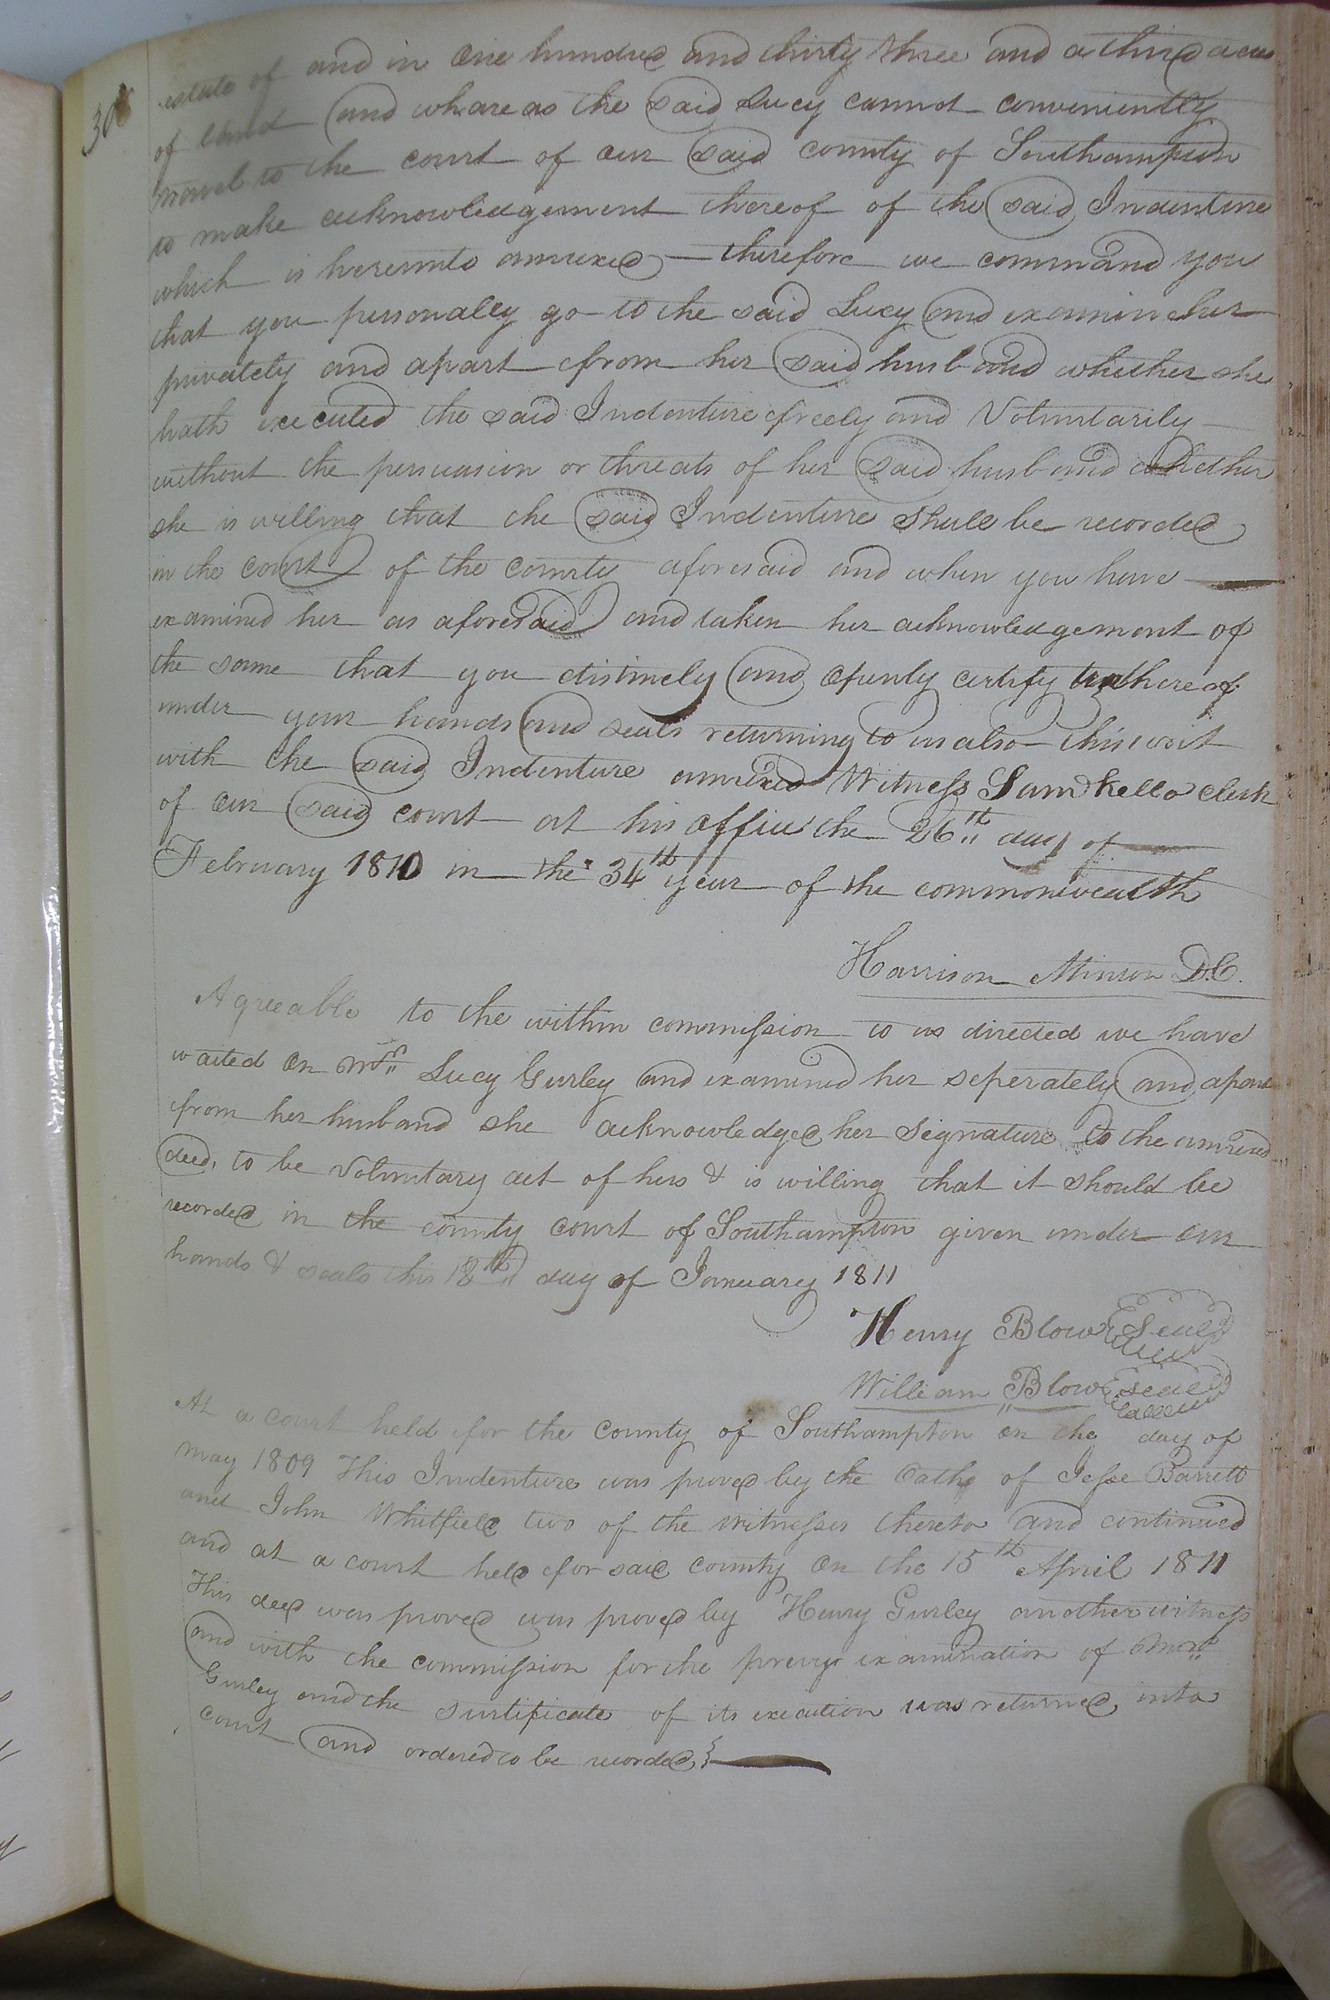 estate of and in One hundred and thirty three and a third acres
of land and whareas the said Lucy cannot conveniently
travel to the court of our said county of Southampton
to make acknowledgement thereof of the said Indenture
which is hereunto annexed — therefore we command you
that you personally go to the said Lucy and examine her
privately and apart from her said husband whether she
hath executed the said Indenture freely and Voluntarily
without the persuasion or threats of her said husband whether
she is willing that the said Indenture shall be recorded
in the court of the County aforesaid and when you have
examined her as aforesaid and taken her acknowledgement of
the same that you distinctly and openly certify us thereof
under your hands and seals returning to us also this writ
with the said Indenture annexed Witness Saml Kello clerk
of our said court at his office the 26th day of
February 1810 in the 34th year of the commonwealth
Harrison Minton D.C.
Agreeable to the within commission to us directed we have
waited on Mrs Lucy Gurley and examined her seperately and apart
from her husband she acknowledged her signature to the annexed
deed, to be Voluntary act of hers & is willing that it should be
recorded in the county court of Southampton given under our
hands & seals this 18th day of January 1811
Henry Blow Seal
William Blow seal
At a court held for the county of Southampton on the day of
may 1809 This Indenture was proved by the Oaths of Jesse Barrett
and John Whitfield two of the Witnesses thereto and continued
and at a court held for said county on the 15th April 1811
This deed was proved was proved by Henry Gurley another witness
and with the commission for the privy examination of Mrs
Gurley and the surtificate of its execution was returned into
court and ordered to be recorded